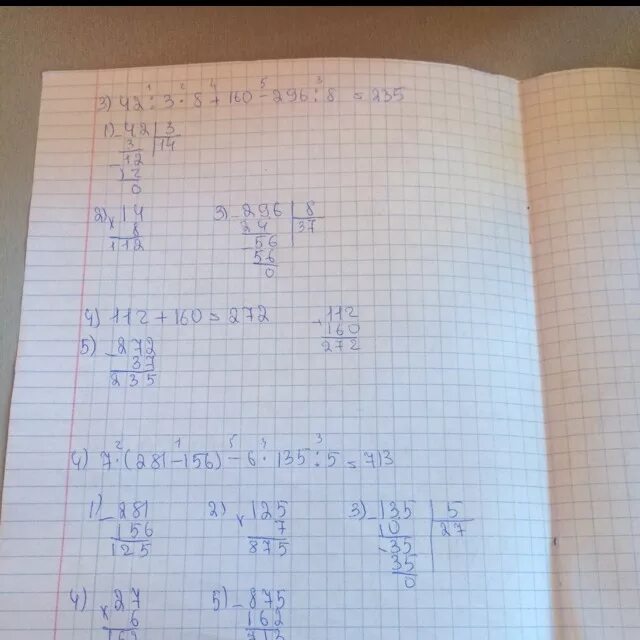 3) 42 : 3 · 8 + 160 - 296 : 8 = 235
1 2 4 5 3
1) - 42 | 3
3 | 14
- 12
12
0
2) x 14
8
112
3) - 296 | 8
24 | 37
- 56
56
0
4) 112 + 160 = 272
+ 112
160
272
5) - 272
37
235
4) 7 · (281 - 156) - 6 · 135 : 5 = 713
2 1 5 4 3
1) - 281
156
125
2) x 125
7
875
3) - 135 | 5
10 | 27
- 35
35
0
4) x 27
6
162
5) - 875
162
713